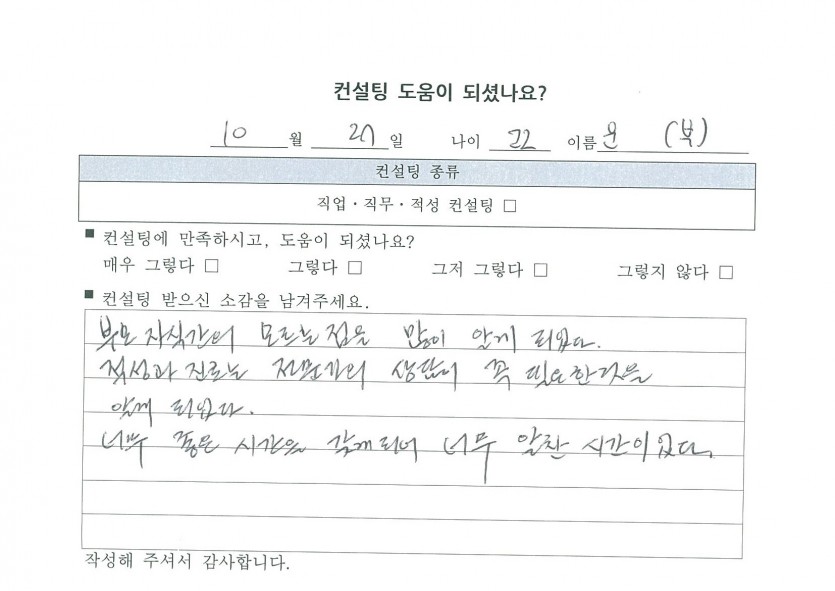 컨설팅 도움이 되셨나요?
10 월 27 일 나이 22 이름 윤 (부)
컨설팅 종류
직업·직무·적성 컨설팅 □
■ 컨설팅에 만족하시고, 도움이 되셨나요?
매우 그렇다 □ 그렇다 □ 그저 그렇다 □ 그렇지 않다 □
■ 컨설팅 받으신 소감을 남겨주세요.
부모 자식간의 모르는 점을 많이 알게 되었다.
적성과 진로는 전문가의 상담이 꼭 필요한것을
알게 되었다.
너무 좋은 시간을 갖게 되어 너무 알찬 시간이었다.
작성해 주셔서 감사합니다.